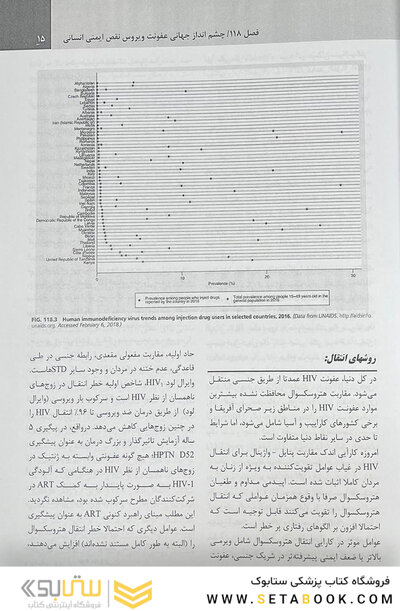 فصل ۱۱۸/ چشم انداز جهانی عفونت ویروس نقص ایمنی انسانی
۱۵
Afghanistan
Bangladesh
Czech Republic
Lebanon
Tunisia
Albania
Australia
Iran (Islamic Republic of)
Montenegro
Morocco
Philippines
Romania
Armenia
Kazakhstan
Kyrgyzstan
Lithuania
Madagascar
Nepal
Netherlands
Sweden
India
Italy
Mexico
Tajikistan
Colombia
France
Indonesia
Malaysia
Senegal
Spain
Viet Nam
Georgia
Latvia
Cambodia
Republic of Moldova
Democratic Republic of the Congo
Benin
Cabo Verde
Myanmar
Ukraine
Estonia
Thailand
Liberia
Sierra Leone
Côte d'Ivoire
Nigeria
United Republic of Tanzania
Kenya
0 10 20 30
Prevalence (%)
Prevalence among people who inject drugs
reported by the country in 2016
Total prevalence among people 15–49 years old in the
general population in 2016
FIG. 118.3 Human immunodeficiency virus trends among injection drug users in selected countries, 2016. (Data from UNAIDS, http://aidsinfo.
unaids.org. Accessed February 6, 2018.)
روشهای انتقال:
در کل دنیا، عفونت HIV عمدتا از طریق جنسی منتقل
می‌شود. مقاربت هتروسکسوال محافظت نشده بیشترین
موارد عفونت HIV را در مناطق زیر صحرای آفریقا و
برخی کشورهای کارائیب و آسیا شامل می‌شود، اما شرایط
تا حدی در سایر نقاط دنیا متفاوت است.
امروزه کارآیی اندک مقاربت پنایل - واژینال برای انتقال
HIV در غیاب عوامل تقویت‌کننده به ویژه از زنان به
مردان کاملا اثبات شده است. اپیدمی مداوم و طغیان
هتروسکسوال صرفا با وقوع همزمان عواملی که انتقال
هتروسکسوال را تقویت می‌کنند قابل توجیه است که
احتمالا افزون بر الگوهای رفتاری پر خطر است.
عوامل موثر در کارایی انتقال هتروسکسوال شامل ویرمی
بالاتر یا ضعف ایمنی پیشرفته‌تر در شریک جنسی، عفونت
حاد اولیه، مقاربت مفعولی مقعدی، رابطه جنسی در طی
قاعدگی، عدم ختنه در مردان و وجود سایر STDهاست.
وایرال لود HIV۱، شاخص اولیه خطر انتقال در زوج‌های
ناهمسان از نظر HIV است و سرکوب بار ویروسی (وایرال
لود) از طریق درمان ضد ویروسی تا ۹۶٪ انتقال HIV را
در چنین زوج‌هایی کاهش می‌دهد. درواقع، در پیگیری ۵
ساله آزمایش تاثیرگذار و بزرگ درمان به عنوان پیشگیری
HPTN D52؛ هیچ گونه عفونتی وابسته به ژنتیک در
زوج‌های ناهمسان از نظر HIV در هنگامی که آلودگی
HIV-1 به صورت پایدار به کمک ART در
شرکت‌کنندگان مطرح سرکوب شده بود، مشاهده نگردید.
این مطلب مبنای راهبرد کنونی ART به عنوان پیشگیری
است. عوامل دیگری که احتمالا خطر انتقال هتروسکسوال
را (البته به طور کامل مستند نشده‌اند) افزایش می‌دهند،
ستابوک
فروشگاه اینترنتی کتاب
فروشگاه کتاب پزشکی ستابوک
WWW.SETABOOK.COM